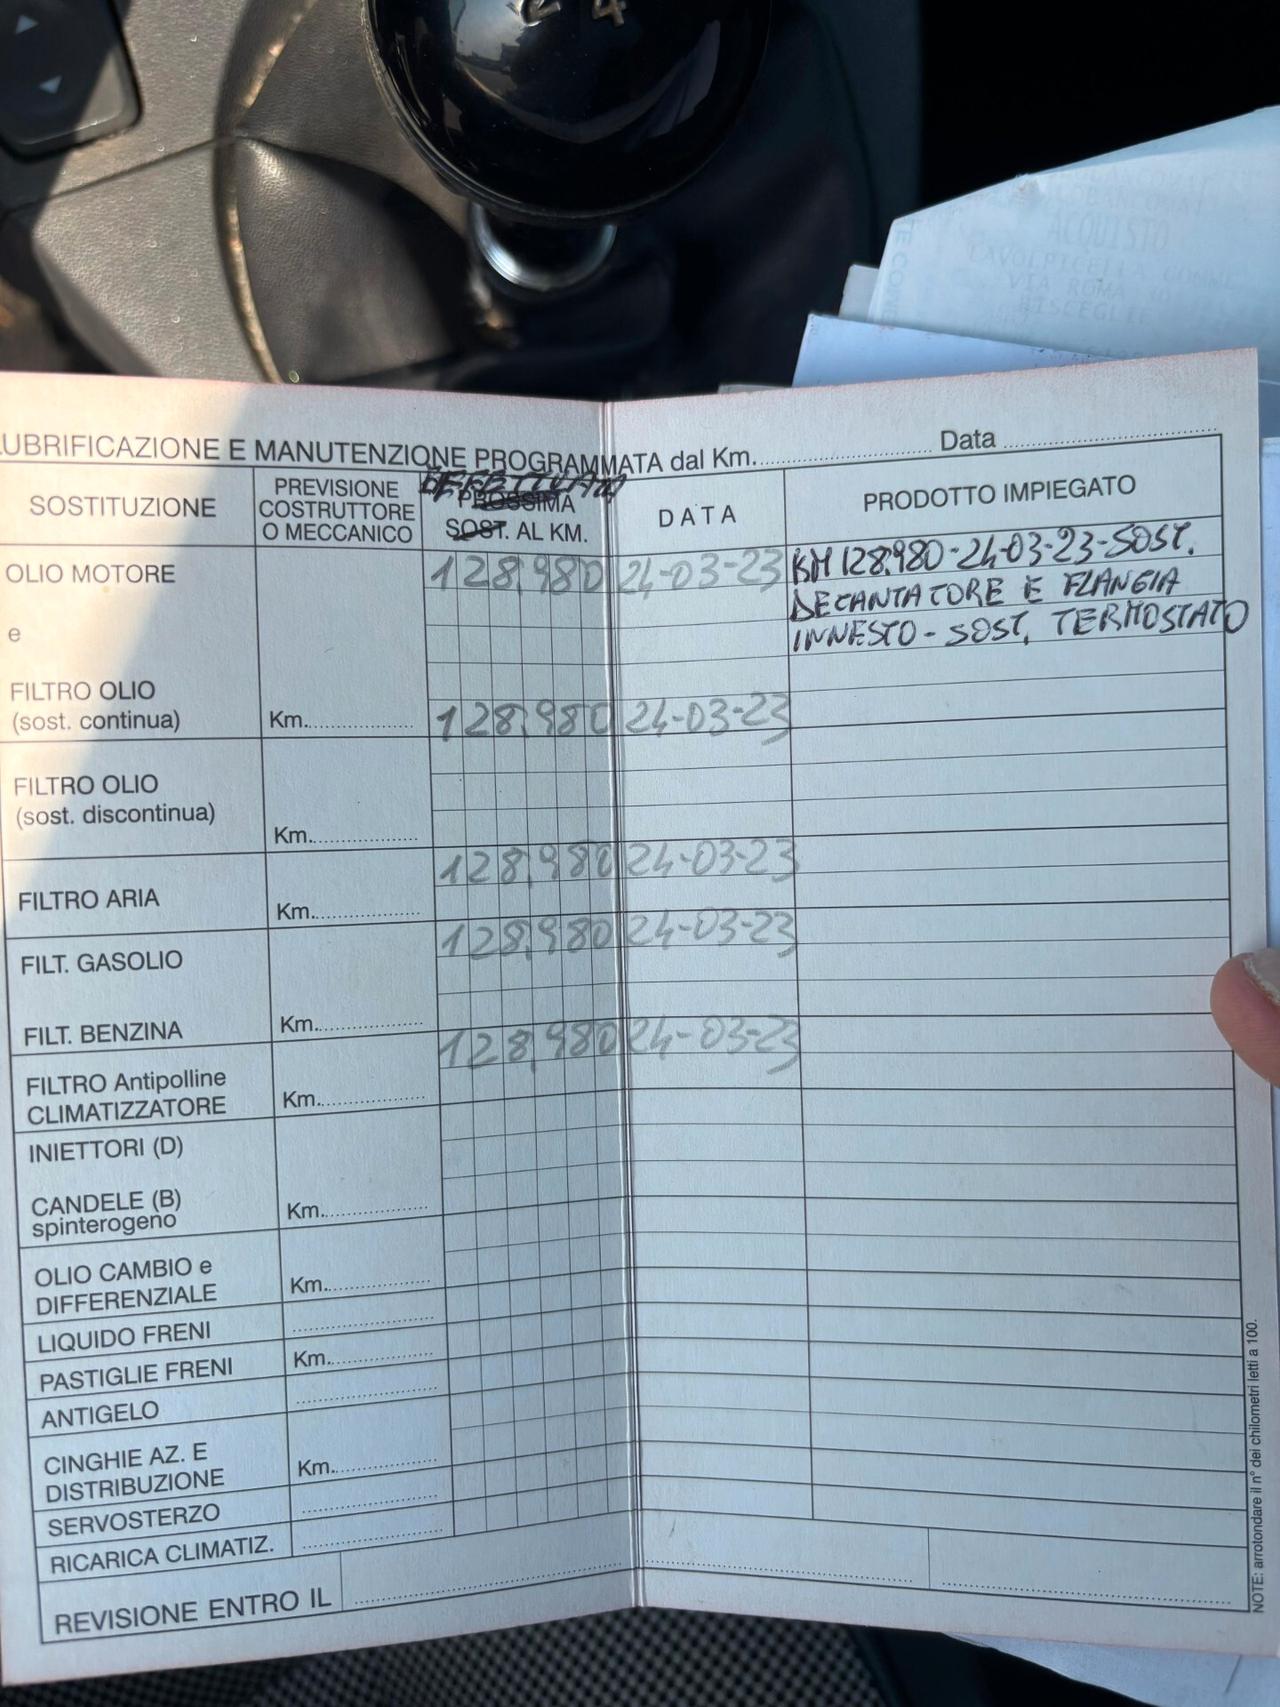 2 4
ACQUISTO
VIA ROMA
BISCEGLIE
LUBRIFICAZIONE E MANUTENZIONE PROGRAMMATA dal Km. Data
SOSTITUZIONE PREVISIONE COSTRUTTORE O MECCANICO EFFETTUATA PROSSIMA SOST. AL KM. DATA PRODOTTO IMPIEGATO
OLIO MOTORE 128.980 24-03-23 KM 128.980-24-03-23-SOST.
DECANTATORE E FLANGIA
e INNESTO - SOST. TERMOSTATO
FILTRO OLIO
(sost. continua) Km. 128.980 24-03-23
FILTRO OLIO
(sost. discontinua)
Km.
128.980 24-03-23
FILTRO ARIA Km.
128.980 24-03-23
FILT. GASOLIO
FILT. BENZINA Km. 128.980 24-03-23
FILTRO Antipolline
CLIMATIZZATORE Km.
INIETTORI (D)
CANDELE (B)
spinterogeno Km.
OLIO CAMBIO e
DIFFERENZIALE Km.
LIQUIDO FRENI
PASTIGLIE FRENI Km.
ANTIGELO
CINGHIE AZ. E
DISTRIBUZIONE Km.
SERVOSTERZO
RICARICA CLIMATIZ.
REVISIONE ENTRO IL
NOTE: arrotondare il n° dei chilometri letti a 100.